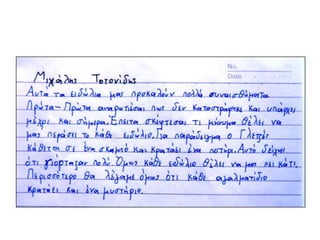 No.
Date
Μιχάλης Τετονίδης
Αυτά τα ειδώλια μας προκαλούν πολλά συναισθήματα
Πρώτα-Πρώτα αναρωτιέσαι πως δεν καταστράφηκε και υπάρχει
μέχρι και σήμερα. Έπειτα σκέφτεσαι τι μήνυμα θέλει να
μας περάσει το κάθε ειδώλιο. Για παράδειγμα ο Γλεπός
κάθεται σε ένα σκαμπό και κρατάει ένα ποτήρι. Αυτό δείχνει
ότι γιόρταζαν πολύ. Όμως κάθε ειδώλιο θέλει να μας πει κάτι.
Περισσότερο θα λέγαμε όμως ότι κάθε αγαλματίδιο
κρατάει και ένα μυστήριο.